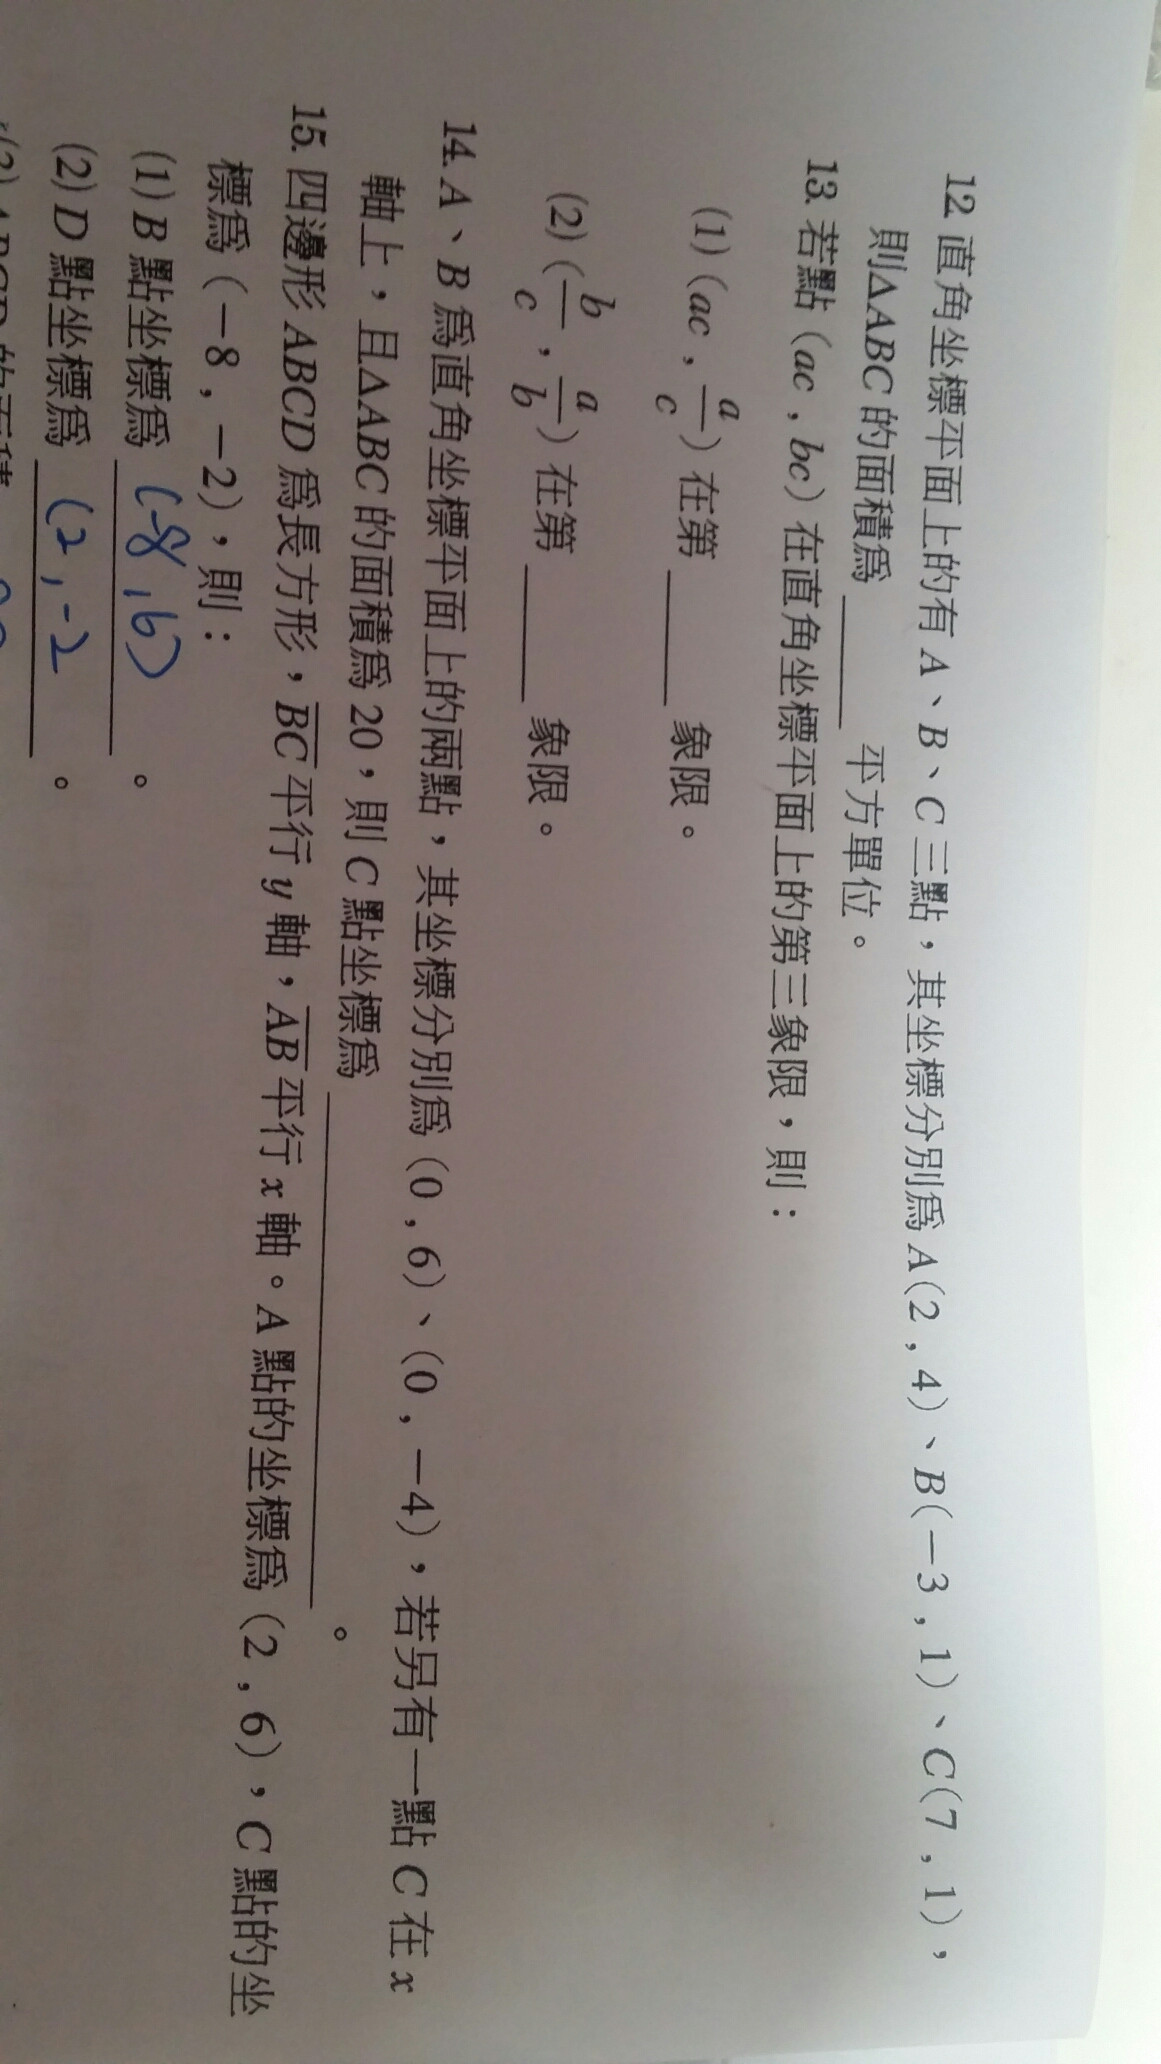 12. 直角坐標平面上的有 A、B、C 三點，其坐標分別爲 A(2 , 4)、B(－3 , 1)、C(7 , 1)，
則△ABC 的面積爲 ______ 平方單位。
13. 若點 (ac , bc) 在直角坐標平面上的第三象限，則：
(1) (ac , a/c) 在第 ______ 象限。
(2) (b/c , a/b) 在第 ______ 象限。
14. A、B 爲直角坐標平面上的兩點，其坐標分別爲 (0 , 6)、(0 , －4)，若另有一點 C 在 x
軸上，且△ABC 的面積爲 20，則 C 點坐標爲 ______ 。
15. 四邊形 ABCD 爲長方形，BC 平行 y 軸，AB 平行 x 軸。A 點的坐標爲 (2 , 6)，C 點的坐
標爲 (－8 , －2)，則：
(1) B 點坐標爲 (-8 , 6) 。
(2) D 點坐標爲 (2 , -2 。
(3) ABCD 的面積